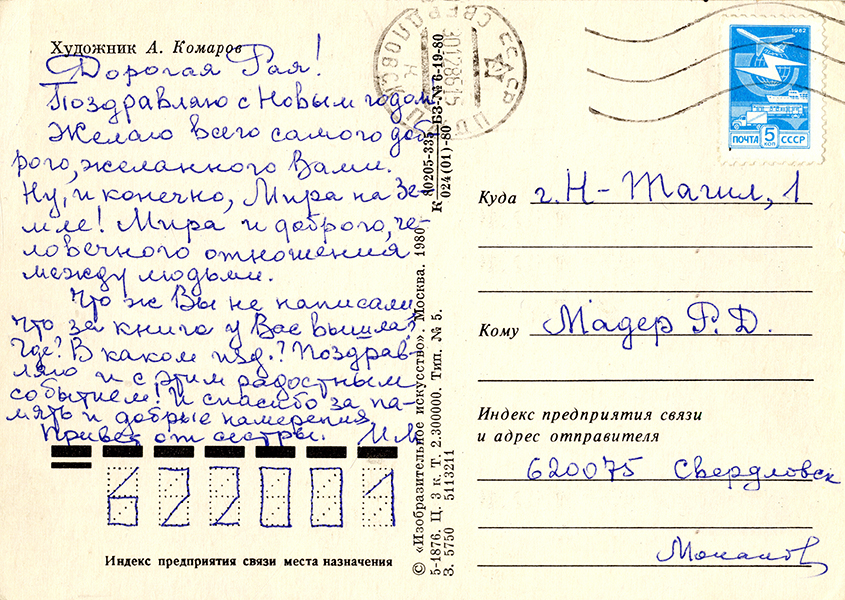 Художник А. Комаров
Дорогая Рая!
Поздравляю с Новым годом
Желаю всего самого доб
рого, желанного Вами.
Ну, и конечно, Мира на Зе-
мле! Мира и доброго, че-
ловечного отношения
между людьми.
Что ж Вы не написали
что за книга у Вас вышла?
Где? В каком изд.? Поздрав
ляю и с этим радостным
событием! И спасибо за па-
мять и добрые намерения.
Привет от сестры. И.М
Индекс предприятия связи места назначения
© «Изобразительное искусство». Москва. 1980
5-1876. Ц. 3 к. Т. 2.300000. Тип. № 5.
З. 5750 5113211
40205-335 БЗ-№ 6-19-80
К 024(01)-80
СВЕРДЛОВСК
1982
ПОЧТА 5 коп СССР
Куда г. Н-Тагил, 1
Кому Мадер Р. Д.
Индекс предприятия связи
и адрес отправителя
620075 Свердловск